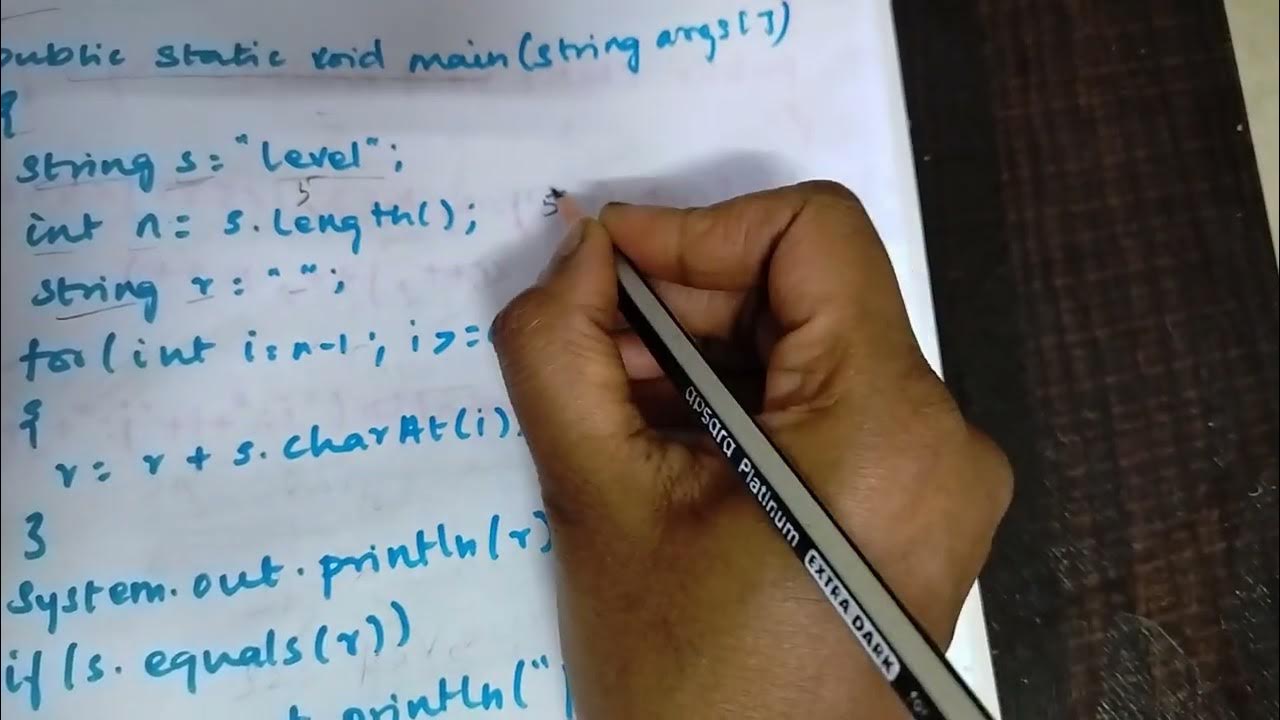 public static void main(string args[])
{
string s="level";
5
int n= s.length();
5
string r= " ";
for(int i=n-1; i>=
{
r= r + s.charAt(i)
}
System.out.println(r)
if(s.equals(r))
println("
apsara Platinum EXTRA DARK